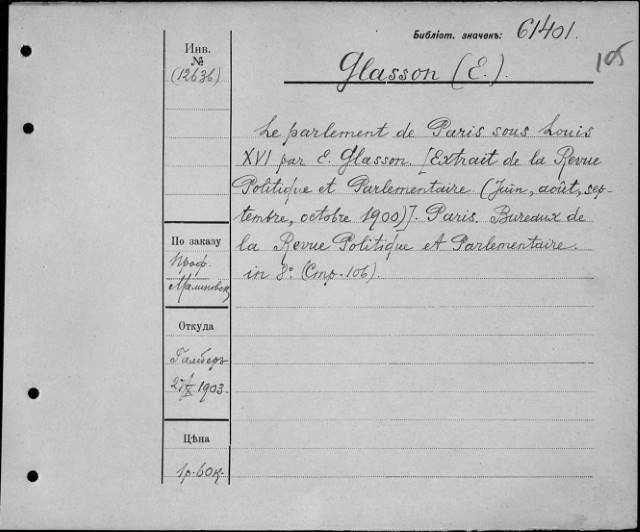 Библіот. значекъ: 61401.
105
Инв.
№
(12636)
Glasson (E.).
Le parlement de Paris sous Louis
XVI par E. Glasson. [Extrait de la Revue
Politique et Parlementaire (Juin, août, sep-
tembre, octobre 1900)]. Paris. Bureaux de
la Revue Politique et Parlementaire.
in 8° (Стр. 106).
По заказу
Проф.
Малиновск
Откуда
27 1903.
Цѣна
1р. 60к.